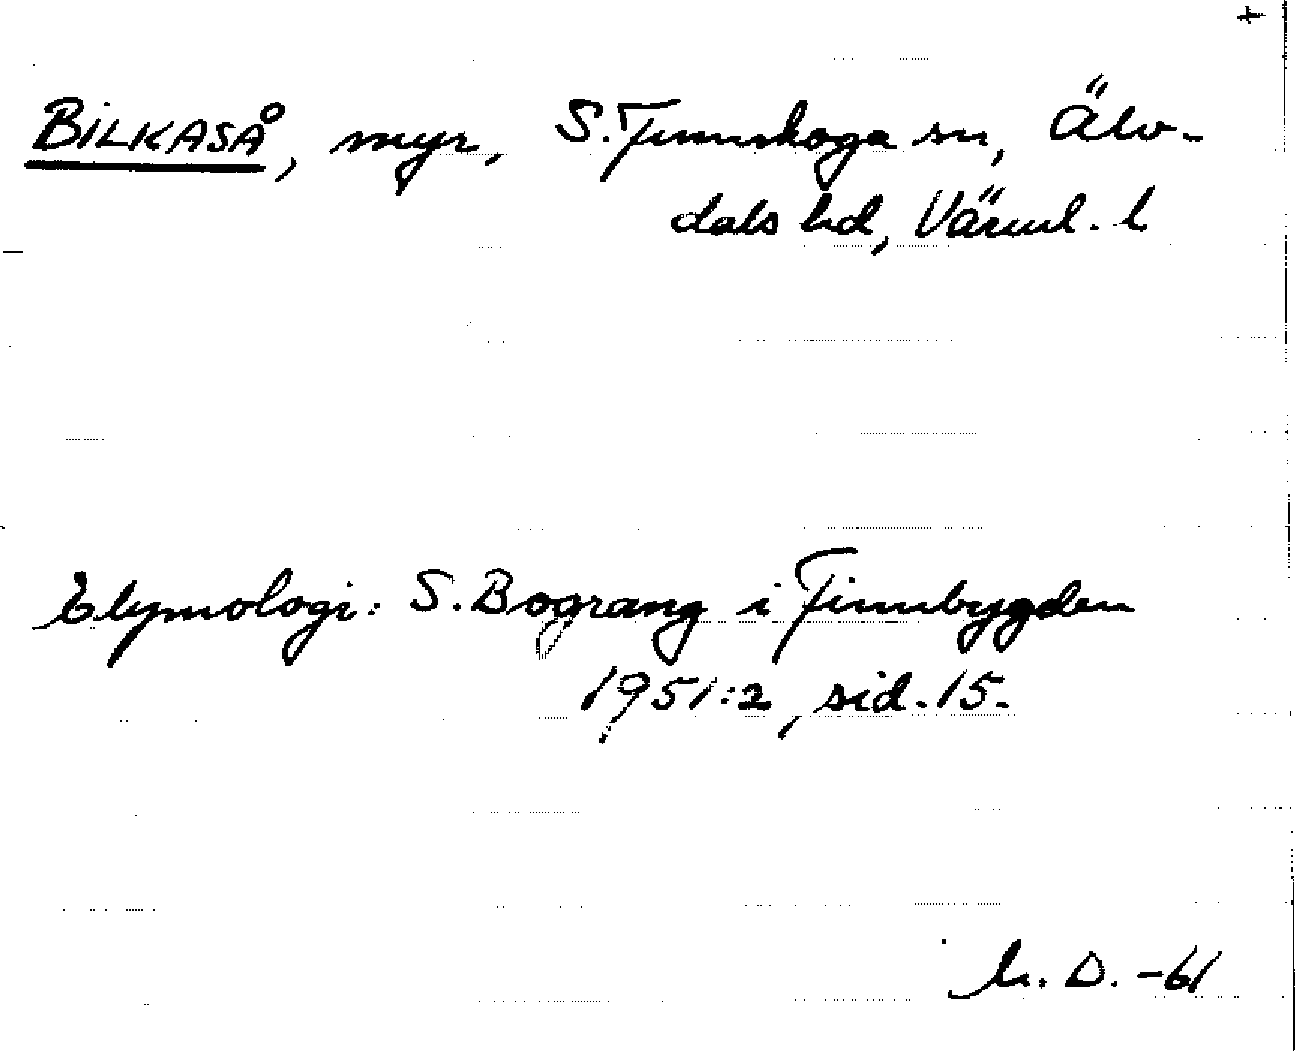 +
BILKASÅ, myr, S. Finnskoga sn, Älv-
dals hd, Värml. l
Etymologi: S. Bograng i Finnbygden
1951:2, sid. 15.
D. -61